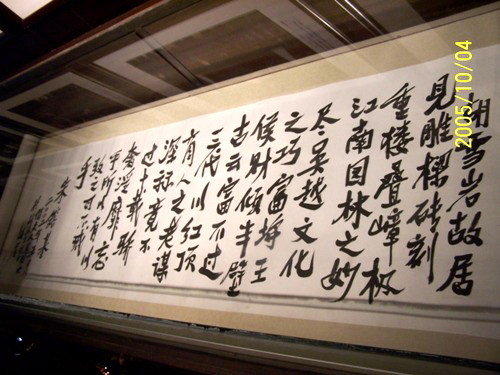 胡雪岩故居
見雕樑砖刻
重楼疊嶂极
江南园林之妙
尽吴越文化
之巧富埒王
侯财倾半壁
古云富不过
三代以红顶
商人之老谋
深祘竟不
过十载骄
奢淫靡忘
乎所以有以
致之可不戒
乎
2005/10/04